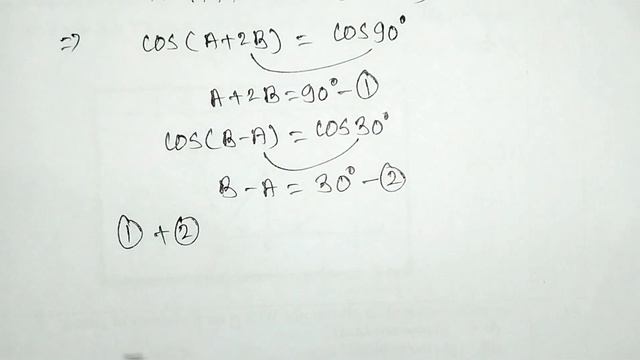 ⇒ cos(A+2B) = cos90°
A+2B=90° - ①
cos(B-A) = cos30°
B-A = 30° - ②
① + ②